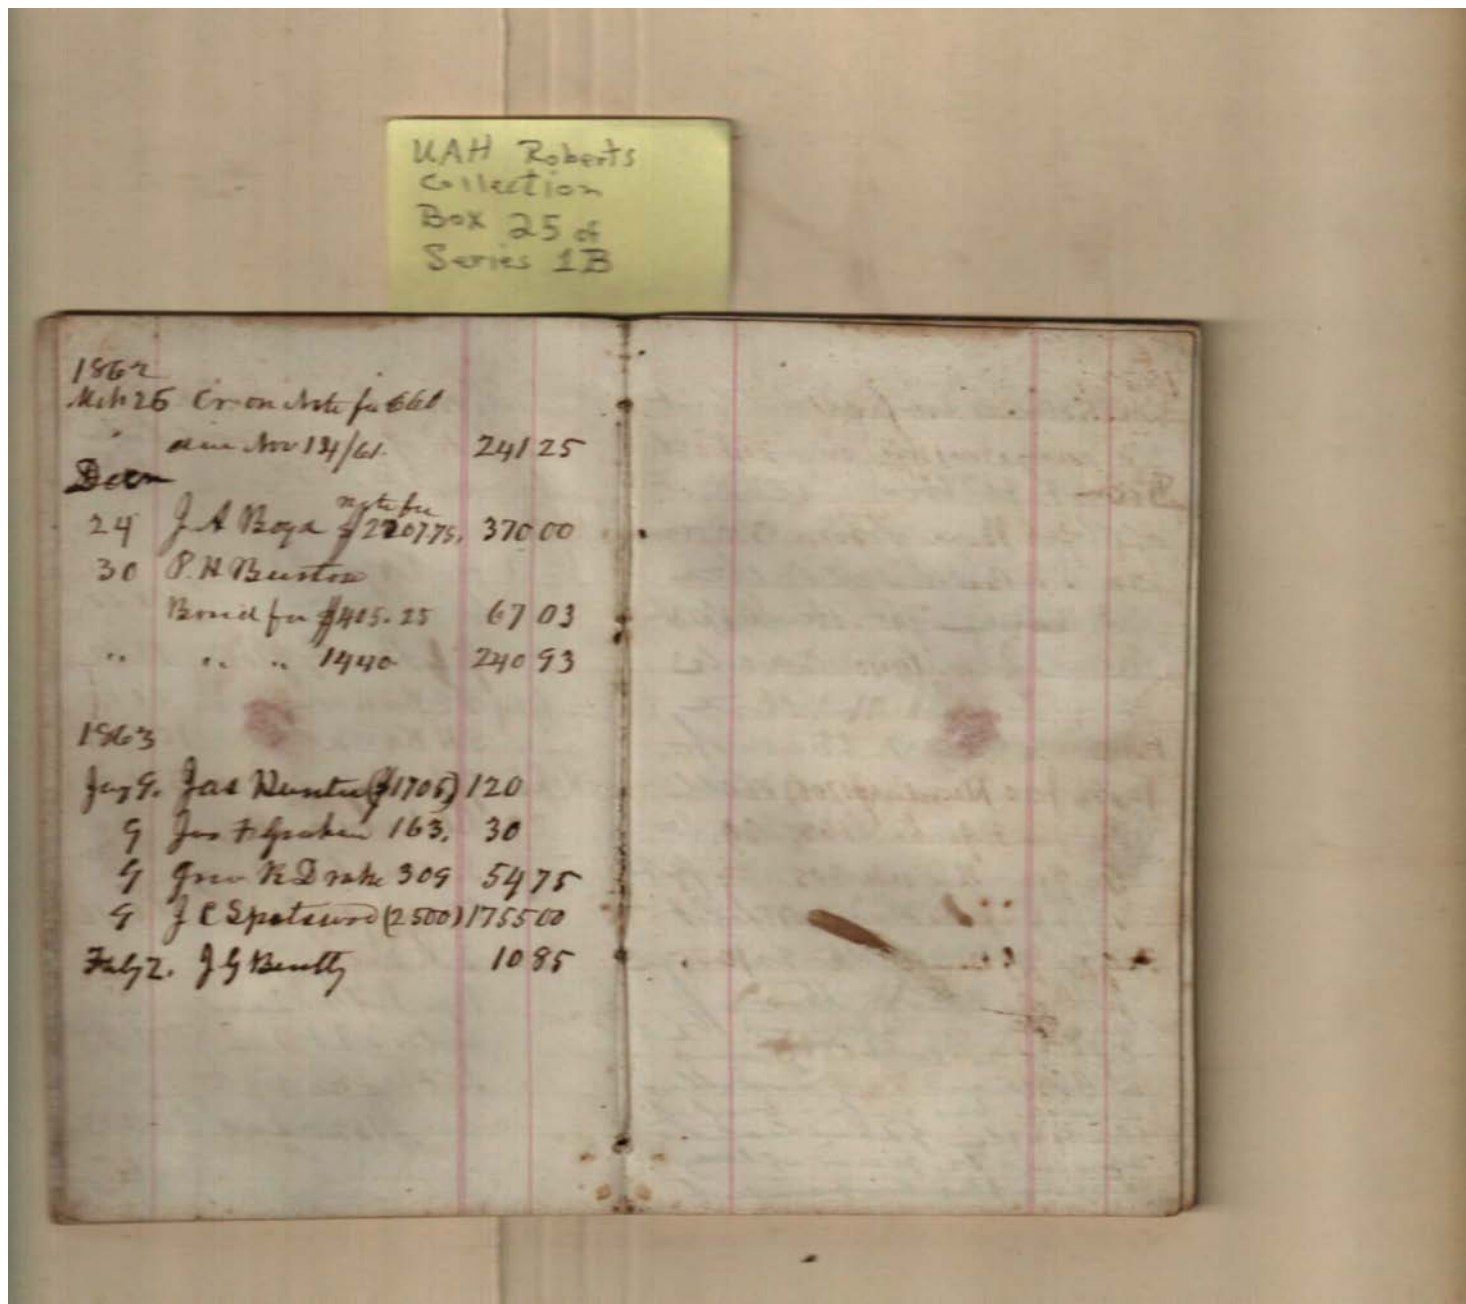 UAH Roberts
Collection
Box 25 of
Series 1B
1862
Mch 25 Cr on Note for 660
" due Nov 134/61. 241 25
Decr
note for
24 J A Boyd $2207.75, 370 00
30 P. H. Burton
Bond for $405.25 67 03
" " " 1440 240 93
1863
Jany 9. Jas Hunter ($1705) 120
9 Jas F Graham 163. 30
9 Geo K Drake 309 54 75
9 J C Spotswood (2500) 175 500
Feby 2. J G Bently 10 85